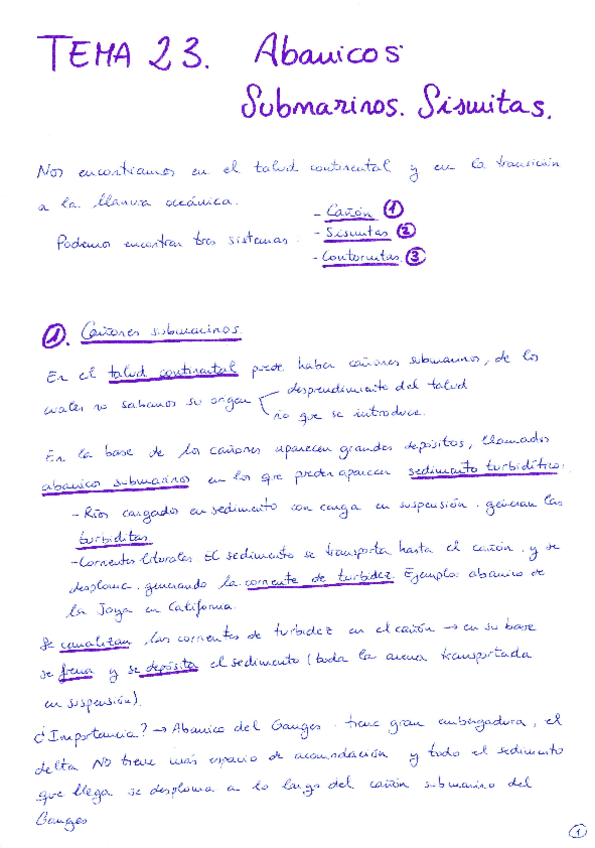 TEMA 23. Abanicos
Submarinos. Sismitas.
Nos encontramos en el talud continental y en la transición
a la llanura oceánica.
Podemos encontrar tres sistemas:
- Cañón ①
- Sismitas ②
- Contornitas ③
①. Cañones submarinos.
En el talud continental puede haber cañones submarinos, de los
cuales no sabemos su origen
desprendimiento del talud
río que se introduce.
En la base de los cañones aparecen grandes depósitos, llamados
abanicos submarinos en los que pueden aparecer sedimento turbidítico.
- Ríos cargados en sedimento con carga en suspensión. generan las
turbiditas
- Corrientes litorales El sedimento se transporta hasta el cañón. y se
desploma. generando la corriente de turbidez. Ejemplo: abanico de
la Joya en California.
Se canalizan las corrientes de turbidez en el cañón → en su base
se frena y se deposita el sedimento (toda la arena transportada
en suspensión).
¿Importancia? → Abanico del Ganges. tiene gran embergadura, el
delta NO tiene más espacio de acomodación y todo el sedimento
que llega se desploma a lo largo del cañón submarino del
Ganges
①